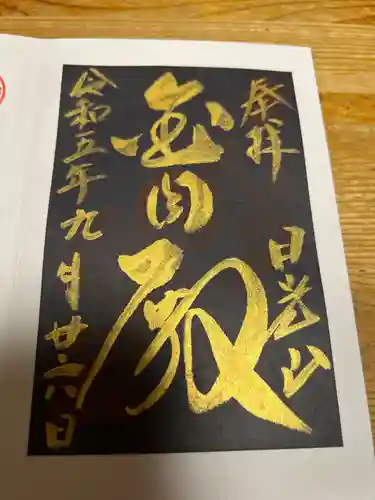 奉拝
日光山
金円殿
令和五年九月廿六日